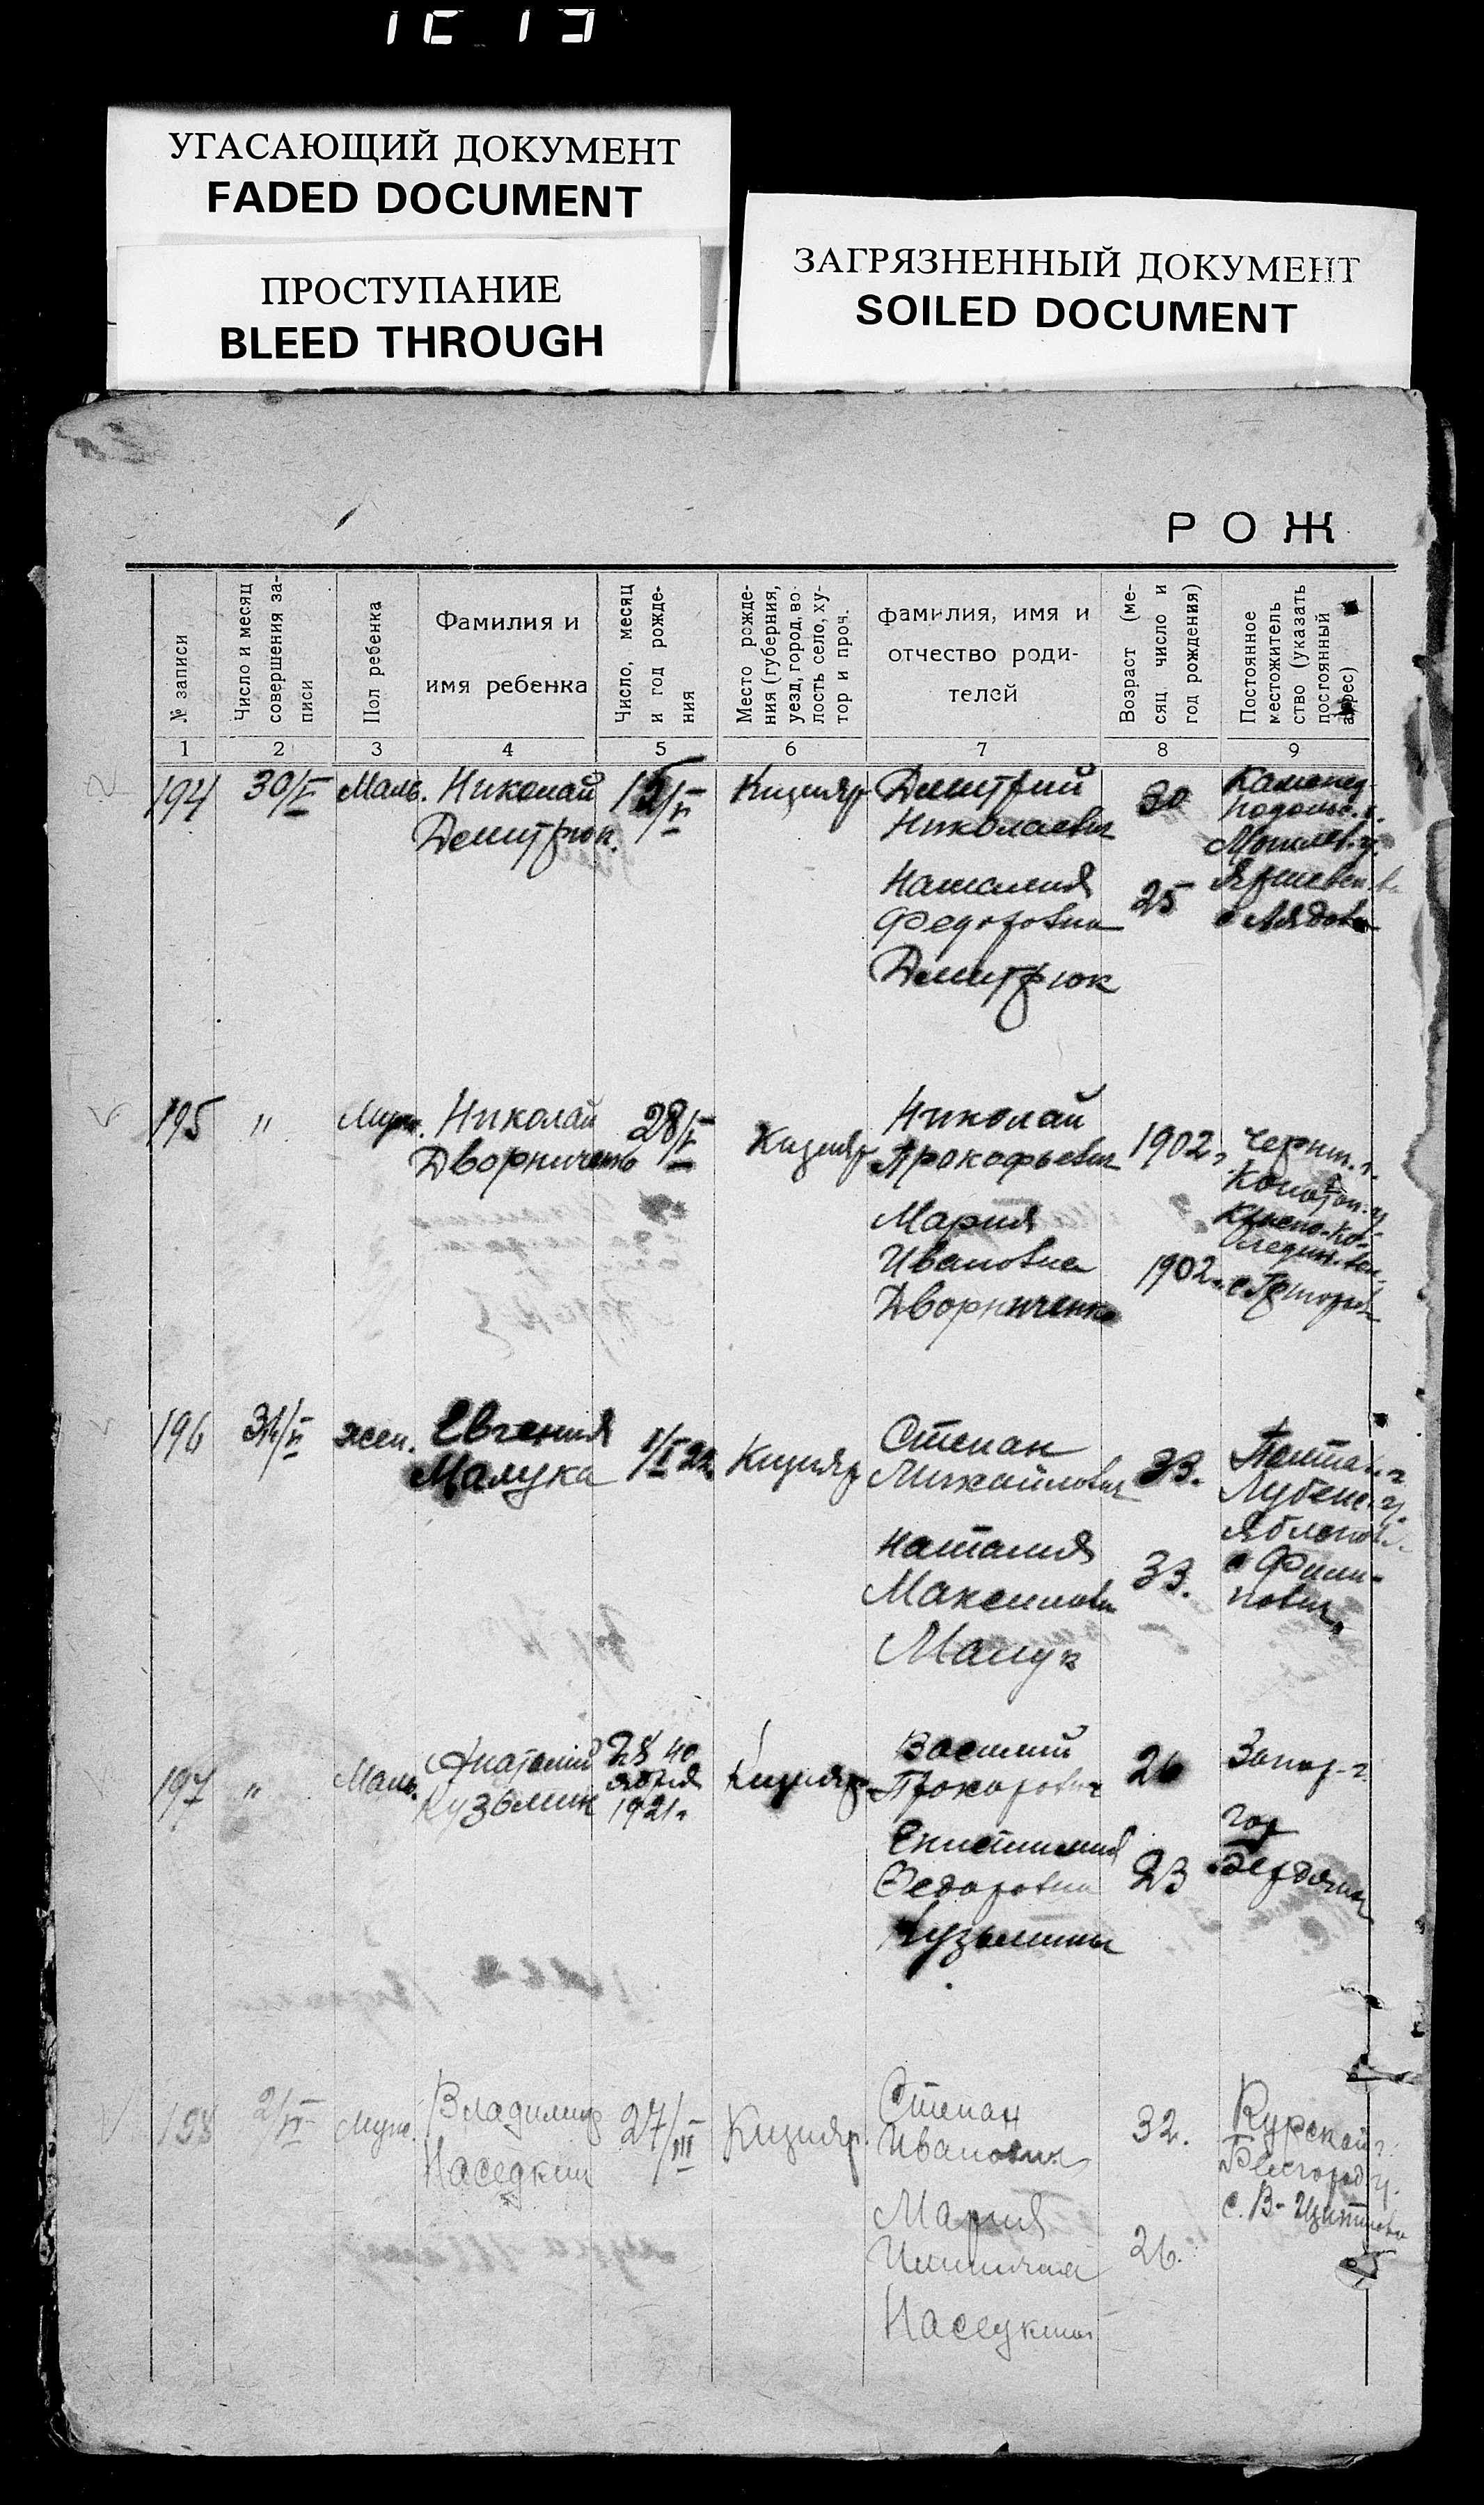 УГАСАЮЩИЙ ДОКУМЕНТ
FADED DOCUMENT
ПРОСТУПАНИЕ
BLEED THROUGH
ЗАГРЯЗНЕННЫЙ ДОКУМЕНТ
SOILED DOCUMENT
РОЖ
№ записи
Число и месяц совершения за-
писи
Пол ребенка
Фамилия и
имя ребенка
Число, месяц
и год рожде-
ния
Место рожде-
ния (губерния,
уезд, город, во-
лость село, ху-
тор и проч.
фамилия, имя и
отчество роди-
телей
Возраст (ме-
сяц число и
год рождения)
Постоянное
местожитель
ство (указать
постоянный
адрес)
1 2 3 4 5 6 7 8 9
194 30/V Маль. Николай
Дмитрюк.
15/V Кизияр
Дмитрий
Николаевич
30
Наталия
Федоровна
25
Дмитрюк
Каменец
Подольс. г.
Могилев. у.
с Лядова
195 " Муж. Николай
Дворниченко
28/V Кизияр
Николай
Прокофьевич
1902г
Мария
Ивановна
1902г.
Дворниченко
Черниг. г.
Конотоп. у
196 31/V жен. Евгения
Малука
1/I 22 Кизияр
Степан
Михайлович
33.
Наталия
Максимовн
33.
Малук
Полтав. г
Лубенс. у.
Яблонов.
с Фили-
пович
197 " Маль. Анатолий
Кузьмин
28 но
ября
1921г
Кизияр
Василий
Прохорович
26
Федоровна
23
Кузьмины
Запор. г.
гор
Бердянск
198 2/VI Муж. Владимир
Наседкин
27/III Кизияр.
Степан
Иванович
32.
Мария
26.
Наседкины
Курской г.
Белгород у.